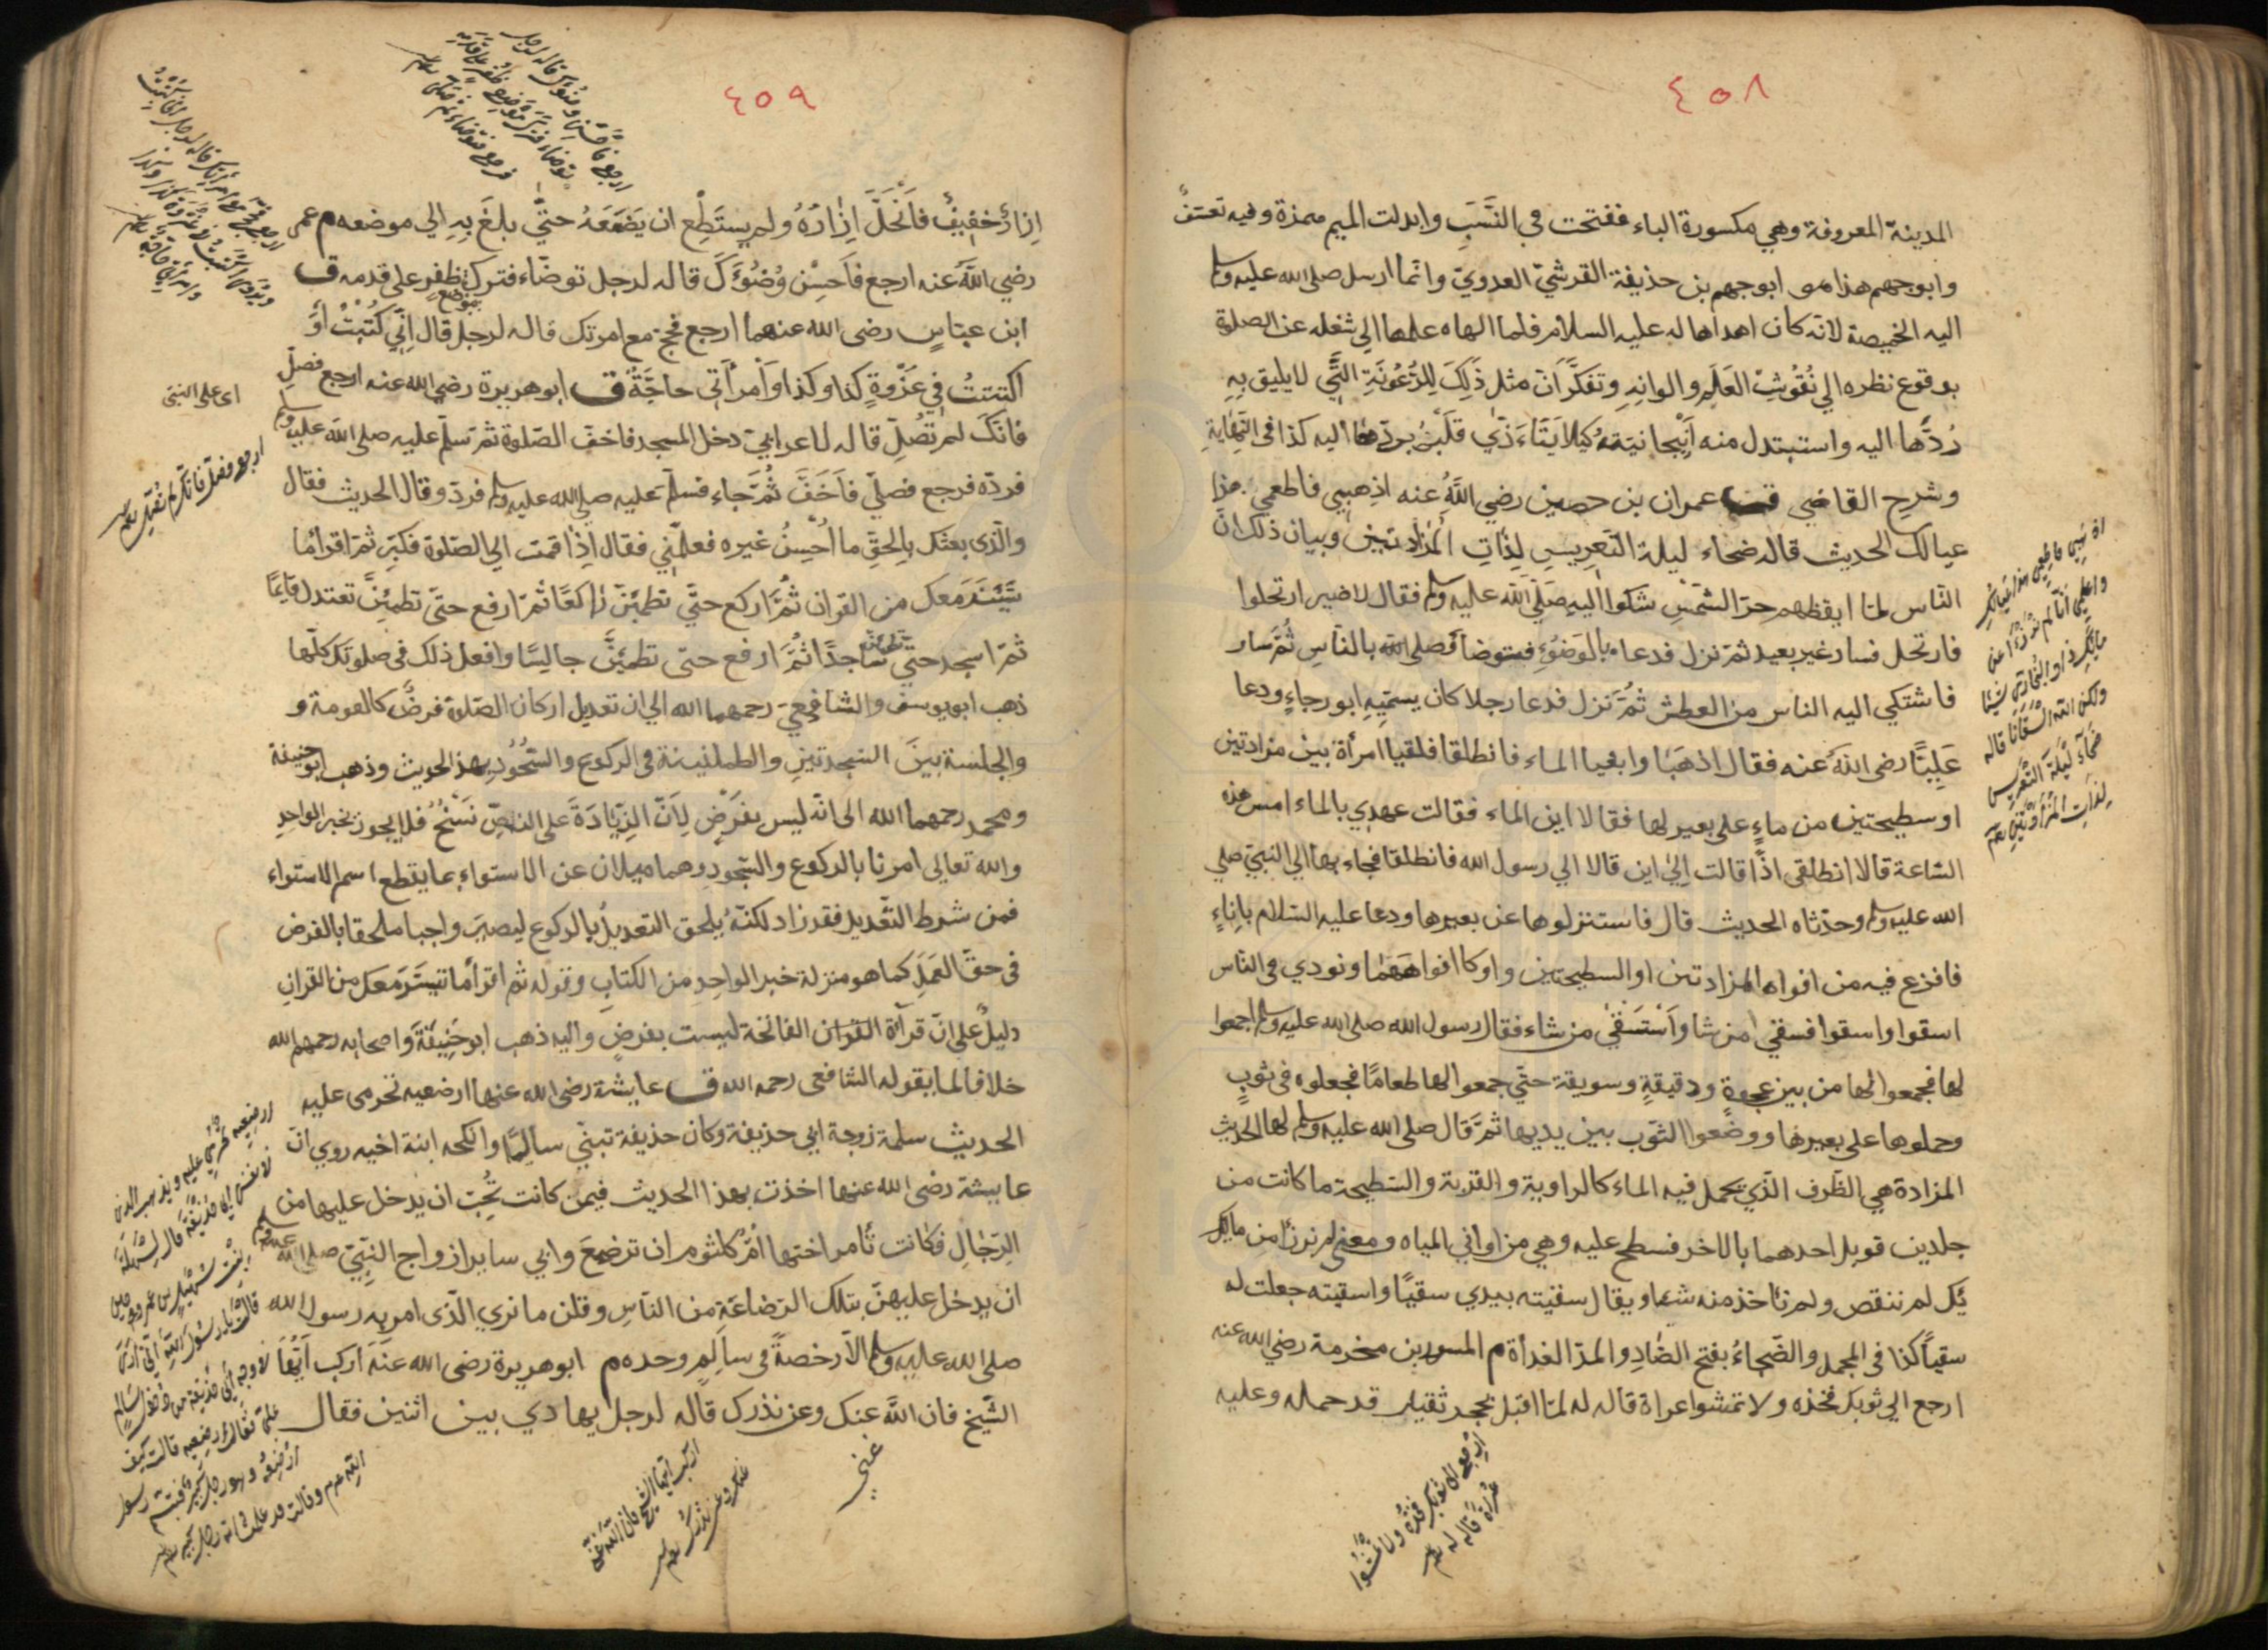 ٤٥٨
المدينة المعروفة وهي مكسورة الباء ففتحت في النَّسَبِ وابدلت الميم همزة وفيه تعسّف
وابوجهم هذا هو ابوجهم بن حذيفة القرشيّ العدويّ وانّما ارسل صلى الله عليه وسلم
اليه الخميصة لانّه كان اهداها له عليه السلام فلما الهاه علمها اي شغله عن الصلوة
بوقوع نظره الي نُقُوشِ العَلَمِ والوانِهِ وتفكَّرَ انّ مثل ذَلِكَ لِلرُّعُونَةِ الَّتي لا يليق بِهِ
رُدَّها اليه واستبدل منه اَنْبِجانيّة كيلا يَتَاَذّي قَلْبُهُ بردّها اليه كذا في النِّهايةِ
وشرح القاضي ق عمران بن حصين رضي اللّهُ عنه اذهبي فاطعمي هذا
عيالك الحديث قاله ضحاء ليلة التّعريسِ لِذاتِ المزادتين وبيان ذلك انّ
النّاس لمّا ايقظهم حرّ الشَّمْسِ شكوا اليه صَلّي اللّه عليه وسلم فقال لا ضير ارتحلوا
فارتحل فسار غير بعيد ثمّ نزل فدعا بالوَضُوءِ فتوضأ فصلى بالنّاس ثُمَّ سار
فاشتكي اليه الناس من العطش ثُمَّ نزل فدعا رجلا كان يسمّيهِ ابو رجاءٍ ودعا
عَلِيًّا رضى الله عنه فقال اذهَبا وابغيا الماء فانطلقا فلقيا امرأة بين مزادتين
او سطيحتين من ماءٍ على بعير لها فقالا اين الماء فقالت عهدي بالماء امس هذه
السّاعة قالا انطلقي اذًا قالت اِليٰ اين قالا الي رسول الله فانطلقا فجاء بها الي النبيّ صلي
الله عليه وسلم وحدّثاه الحديث قال فاستنزلوها عن بعيرها ودعا عليه السّلام بِاِناءٍ
فافرغ فيه من افواه المزادتين او السطيحتين واوكا افواههما ونودي في النّاس
اسقوا واستقوا فسقي من شا وَاستَسقٰي من شاء فقال رسول الله صلى الله عليه وسلم اجمعوا
لها فجمعوا لها من بين عجوةٍ ودقيقةٍ وسويقة حتّي جمعوا لها طعامًا فجعلوه في ثوبٍ
وحملوها على بعيرها ووضعوا الثّوب بين يديها ثمّ قال صلى الله عليه وسلم لها الحديث
المزادة هي الظّرف الّذي يحمل فيه الماء كالراوية والقربة والسّطيحة ما كانت من
جلدين قوبل احدهما بالاخر فسطح عليه وهي من اواني المياه ومعني لم نرزأ من مائك
لم ننقص ولم ناخذ منه شيئا ويقال سقيته بيدي سقيًا واسقيته جعلت له
سقياً كذا في المجمل والضّحاءُ بفتح الضّادِ والمدّ الغداة م المسور بن مخرمة رضي الله عنه
ارجع الي ثوبك فخذه ولا تمشوا عراة قاله له لمّا اقبل بحجر ثقيل قد حمله وعليه
اذهبي فاطعمي هذا عيالك
واعلمي انّا لم نرزأ من
مائك شيئا
ولكن الله سقانا قاله
ضحاء ليلة التّعريس
لذات المزادتين
ارجع الى ثوبك فخذه ولا تمشوا
عراة قاله له
٤٥٩
اِزارٌ خفيفٌ فَانْحَلَّ اِزَارُهُ ولم يستَطِع ان يَضَعَهُ حتّي بلغَ بِهِ الي موضعه م عمر
رضي اللّهُ عنه ارجع فَاَحسِنْ وُضُوءَكَ قاله لرجل توضّاء فترك موضع ظفر على قدمه ق
ابن عبّاسٍ رضى الله عنهما ارجع فحجّ مع امرتك قاله لرجل قال اِنّي كُتِبْتُ أَوْ
اكتتبتُ في غَزْوةٍ كذا وكذا وَاَمْرأَتي حاجَّةٌ ق ابو هريرة رضي الله عنه ارجع فصلِّ
فانّكَ لم تُصَلِّ قاله لاعرابيّ دخل المسجد فاخفّ الصّلوة ثمّ سلّم عليه صلى الله عليه وسلم
فردّه فرجع فصلّي فَاَخَفَّ ثُمَّ جاء فسلّم عليه صلى الله عليه وسلم فردّ وقال الحديث فقال
والّذى بعثك بالحقِّ ما اُحْسِنُ غيره فعلّمْني فقال اِذا قمت الي الصّلوة فكبِّر ثمّ اقرأ ما
تَيَسَّرَ مَعَك من القران ثُمَّ اركع حتّي تطمئنّ راكعًا ثمّ ارفع حتّي تطمئنَّ تعتدل قائمًا
ثمّ اسجد حتّي تطمئنّ ساجدًا ثُمَّ ارفع حتى تطمئنَّ جالِسًا وافعل ذلك في صلوتك كلّها
ذهب ابو يوسف والشافعيّ رحمهما الله الي ان تعديل اركان الصّلاة فرضٌ كالقومة و
والجلسة بينَ السّجدتينِ والطمانينة في الركوع والسُّجُودِ بهذا الحديث وذهب ابو حنيفة
ومحمد رحمهما الله الى انّه ليس بفرضٍ لِاَنّ الزّيَادَةَ على النّصِّ نَسْخٌ فلا يجوز بخبر الواحِدِ
والله تعالي امرنا بالركوع والسّجودِ وهما ميلان عن الاستواء بما يقطع اسم الاستواء
فمن شرط التّعديل فقد زاد لكنّهُ يُلحق التعديلُ بالركوع ليصيرَ واجبا ملحقا بالفرض
في حقّ العَمَلِ كما هو منزلة خبر الواحِدِ من الكتابِ وقوله ثم اقرأ ما تيسَّرَ مَعَك من القرانِ
دليلٌ على انّ قرآة القران الفاتحة ليست بفرضٍ واليه ذهب ابو حَنِيفَةَ واصحابه رحمهم الله
خلافا لما يقوله الشافعى رحمه الله ق عايشة رضى الله عنها ارضعيه تحرمى عليه
الحديث سلمة زوجة ابي حذيفة وكان حذيفة تبنّي سالِمًا وانكحه ابنة اخيه روي انّ
عايشة رضى الله عنها اخذت بهذا الحديث فيمن كانت تُحِبّ ان يدخل عليها من
الرّجالِ فكانت تأمر اختها امّ كلثوم ان ترضِعَ وابي ساير ازواج النبيّ صلى الله عليه وسلم
ان يدخل عليهنّ بتلك الرّضاعَةِ من النّاسِ وقلن ما نري الّذى امر به رسول الله
صلى الله عليه وسلم الّا رخصةً في سالمٍ وحده م ابو هريرة رضى الله عنه اركب اَيُّها
الشّيخ فان اللّه غنىّ عنك وعن نذرك قاله لرجل يهادي بين اثنين فقال
ارجع فاحسن وضوءك قاله لرجل
توضاء فترك موضع ظفر على قدمه
فرجع فتوضاء ثم صلى
اى على النبى
ارجع فصلّ فانّك لم تصلّ
غني
اركب ايها الشيخ فان الله غنى
عنك وعن نذرك